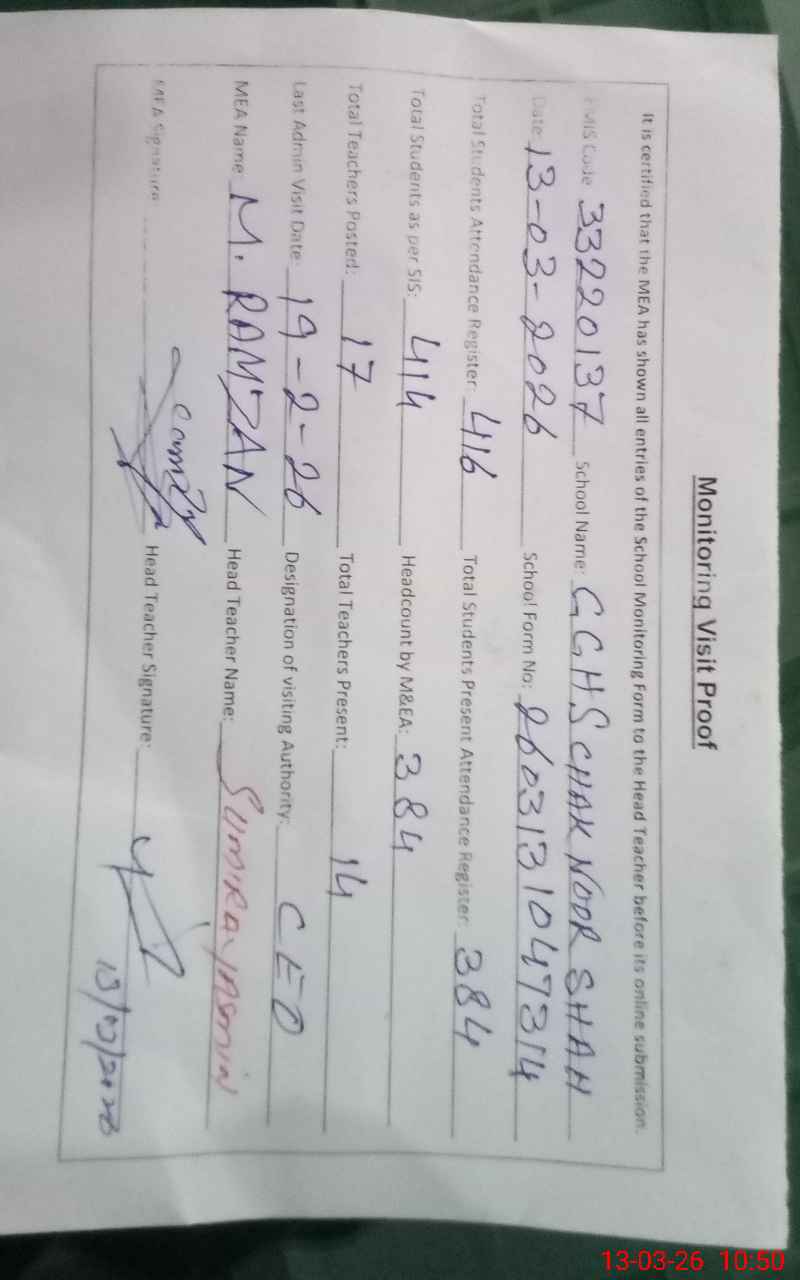 Monitoring Visit Proof
It is certified that the MEA has shown all entries of the School Monitoring Form to the Head Teacher before its online submission.
EMIS Code 33220137 School Name: GGHS CHAK NOOR SHAH
Date: 13-03-2026 School Form No: 2603131047314
Total Students Attendance Register: 416 Total Students Present Attendance Register: 384
Total Students as per SIS: 414 Headcount by M&EA: 384
Total Teachers Posted: 17 Total Teachers Present: 14
Last Admin Visit Date: 19-2-26 Designation of visiting Authority: CEO
MEA Name: M. RAMZAN Head Teacher Name: SUMIRA YASMIN
MEA Signature Head Teacher Signature:
13/03/2026
13-03-26 10:50